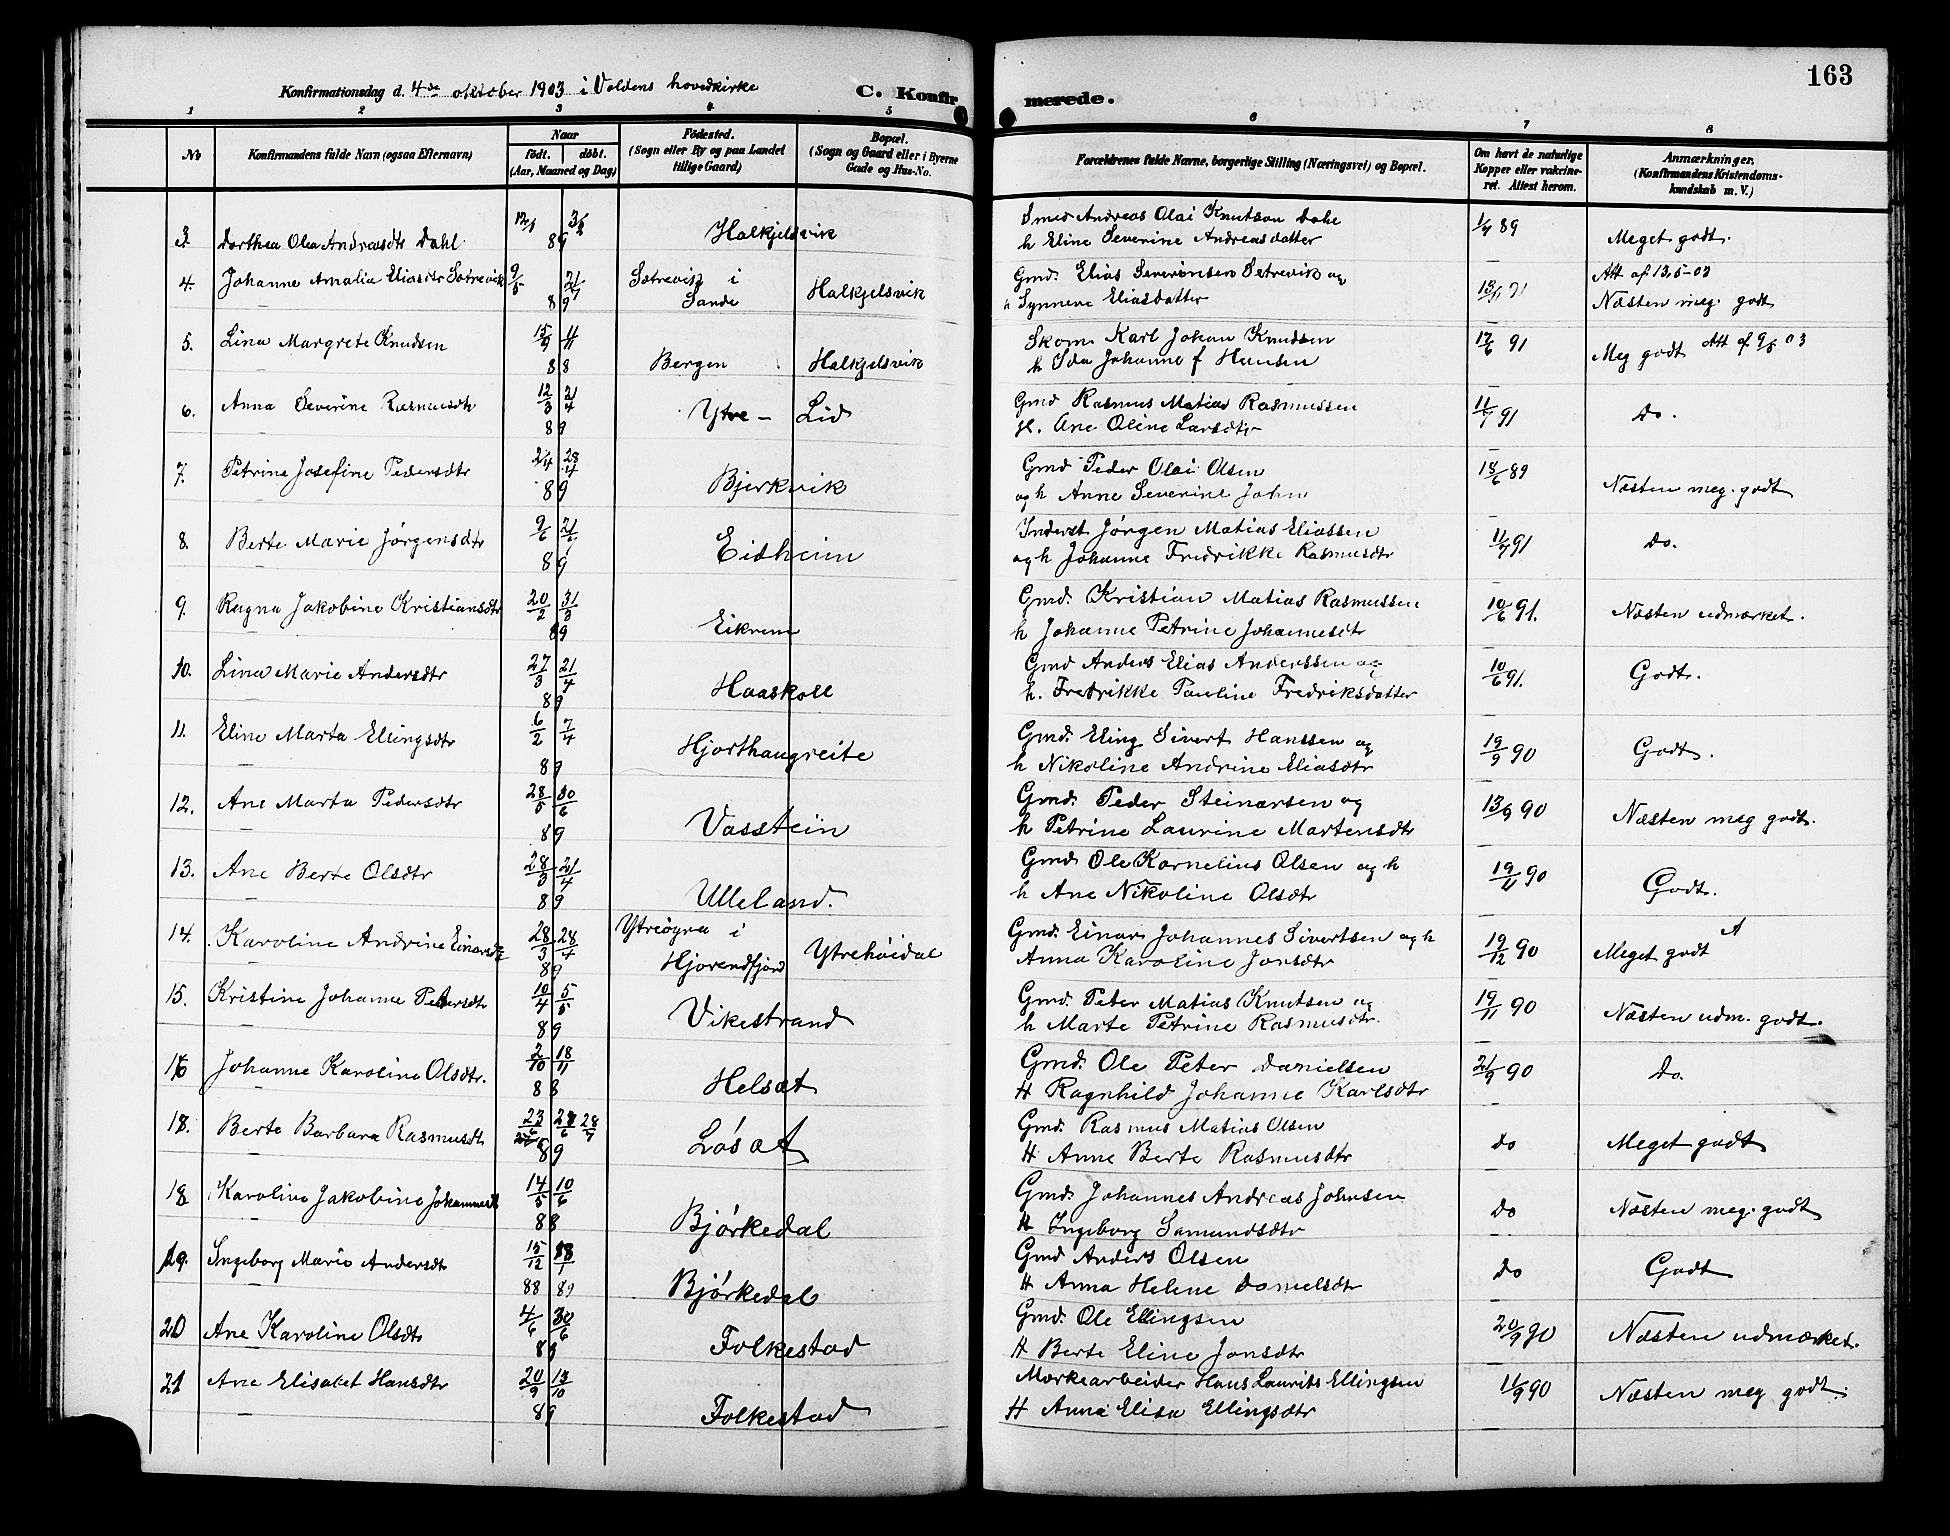 163
Konfirmationsdag d. 4de oktober 1903 i Voldens hovedkirke C. Konfirmerede.
1 2 3 4 5 6 7 8
No Konfirmandens fulde Navn (ogsaa Efternavn) Naar født. døbt. (Aar, Maaned og Dag) Fødested. (Sogn eller By og paa Landet tillige Gaard) Bopæl. (Sogn og Gaard eller i Byerne Gade og Hus-No. Forældrenes fulde Navne, borgerlige Stilling (Næringsvei) og Bopæl. Om havt de naturlige Kopper eller vakcineret. Attest herom. Anmærkninger. (Konfirmandens Kristendomskundskab m. V.)
3. Dorthea Olea Andreasdtr Dahl. 89 Halkjelsvik Smed Andreas Olai Knutson Dahl 89 Meget godt.
h Eline Severine Andreasdatter
4. Johanne Amalia Eliasdtr Sætrevik 9/5 21/7 Sætrevik i Gmd. Elias Severinsen Sætrevik og Att af 13,5-03
89 Sande Halkjelsvik h Synneve Eliasdatter 91 Næsten meg. godt
5. Lina Margrete Knudsen 15/9 4/11 Skom. Karl Johan Knudsen 17/6 91
88 Bergen Halkjelsvik h Ida Johanne f Hansen Meg godt Att af 9/5 03
6. Anna Severine Rasmusdtr 12/3 21/4 Ytre - Lid Gmd Rasmus Matias Rasmussen 11/7 91 Do.
89 H. Ane Oline Larsdtr
7. Petrine Josefine Pedersdtr 2/4 28/4 Bjerkvik Gmd Peder Olai Olsen 18/6 89
89 og h Anne Severine John Næsten meg. godt
8. Berte Marie Jørgensdtr 9/6 21/6 Eidheim Inderst Jørgen Matias Eliassen 11/7 91 Do.
89 og h Johanne Fredrikke Rasmusdtr
9. Ragna Jakobine Kristiansdtr 20/2 31/3 Gmd. Kristian Matias Rasmussen 10/6 91. Næsten udmærket.
89 Eikrem h Johanne Petrine Johannesdtr
10. Lina Marie Andersdtr 27/3 21/4 Haaskoll Gmd Anders Elias Anderssen og 10/6 91. Godt.
89 h. Fredrikke Pauline Fredriksdatter
11. Eline Marta Ellingsdtr 6/2 7/4 Hjorthaugreite Gmd. Eling Sivert Hanssen og 19/9 90 Godt.
89 h Nikoline Andrine Eliasdtr
12. Ane Marta Pedersdtr 28/5 30/6 Gmd. Peder Steinarsen og 13/9 90 Næsten meg godt.
89 Vasstein h Petrine Laurine Martensdtr
13. Ane Berte Olsdtr 28/3 21/4 Gmd. Ole Kornelius Olsen og h 19/11 90 Godt.
89 Ulleland. h Ane Nikoline Olsdtr
14. Karoline Andrine Einarsdtr 28/3 28/4 Ytreøgra i Ytrehøidal Gmd. Einar Johannes Sivertsen og h 19/12 90 Meget godt A
89 Hjørendfjord Anna Karoline Jonsdtr
15. Kristine Johanne Petersdtr 10/4 5/5 Vikestrand Gmd. Peter Matias Knutsen og 19/11 90 Næsten udm. godt.
89 h Marte Petrine Rasmusdtr.
16 Johanne Karoline Olsdtr. 2/10 18/11 Helsæt Gmd. Ole Peter Danielsen 21/9 90 Do.
88 H Ragnhild Johanne Karlsdtr
17. Berte Barbara Rasmusdtr 23/6 28/7 Løsæt Gmd. Rasmus Matias Olsen Do Meget godt
89 H Anne Berte Rasmusdtr
18 Karoline Jakobine Johannesdtr 14/5 10/6 Gmd. Johannes Andreas Johnsen Do Næsten meg. godt
88 Bjørkedal H Ingeborg Samundsdtr
19. Ingeborg Marie Andersdtr 15/12 Gmd Anders Olsen Do Godt
88 89 Bjørkedal H Anna Helene Danielsdtr
20 Ane Karoline Olsdtr 4/6 30/6 Folkestad Gmd. Ole Ellingsen 20/9 90 Næsten udmærket.
89 H Berte Eline Jonsdtr
21 Ane Elisabet Hansdtr 20/9 13/10 Markearbeider Hans Laurits Ellingsen 11/9 90 Næsten meg godt.
89 Folkestad H Anna Elisa Ellingsdtr